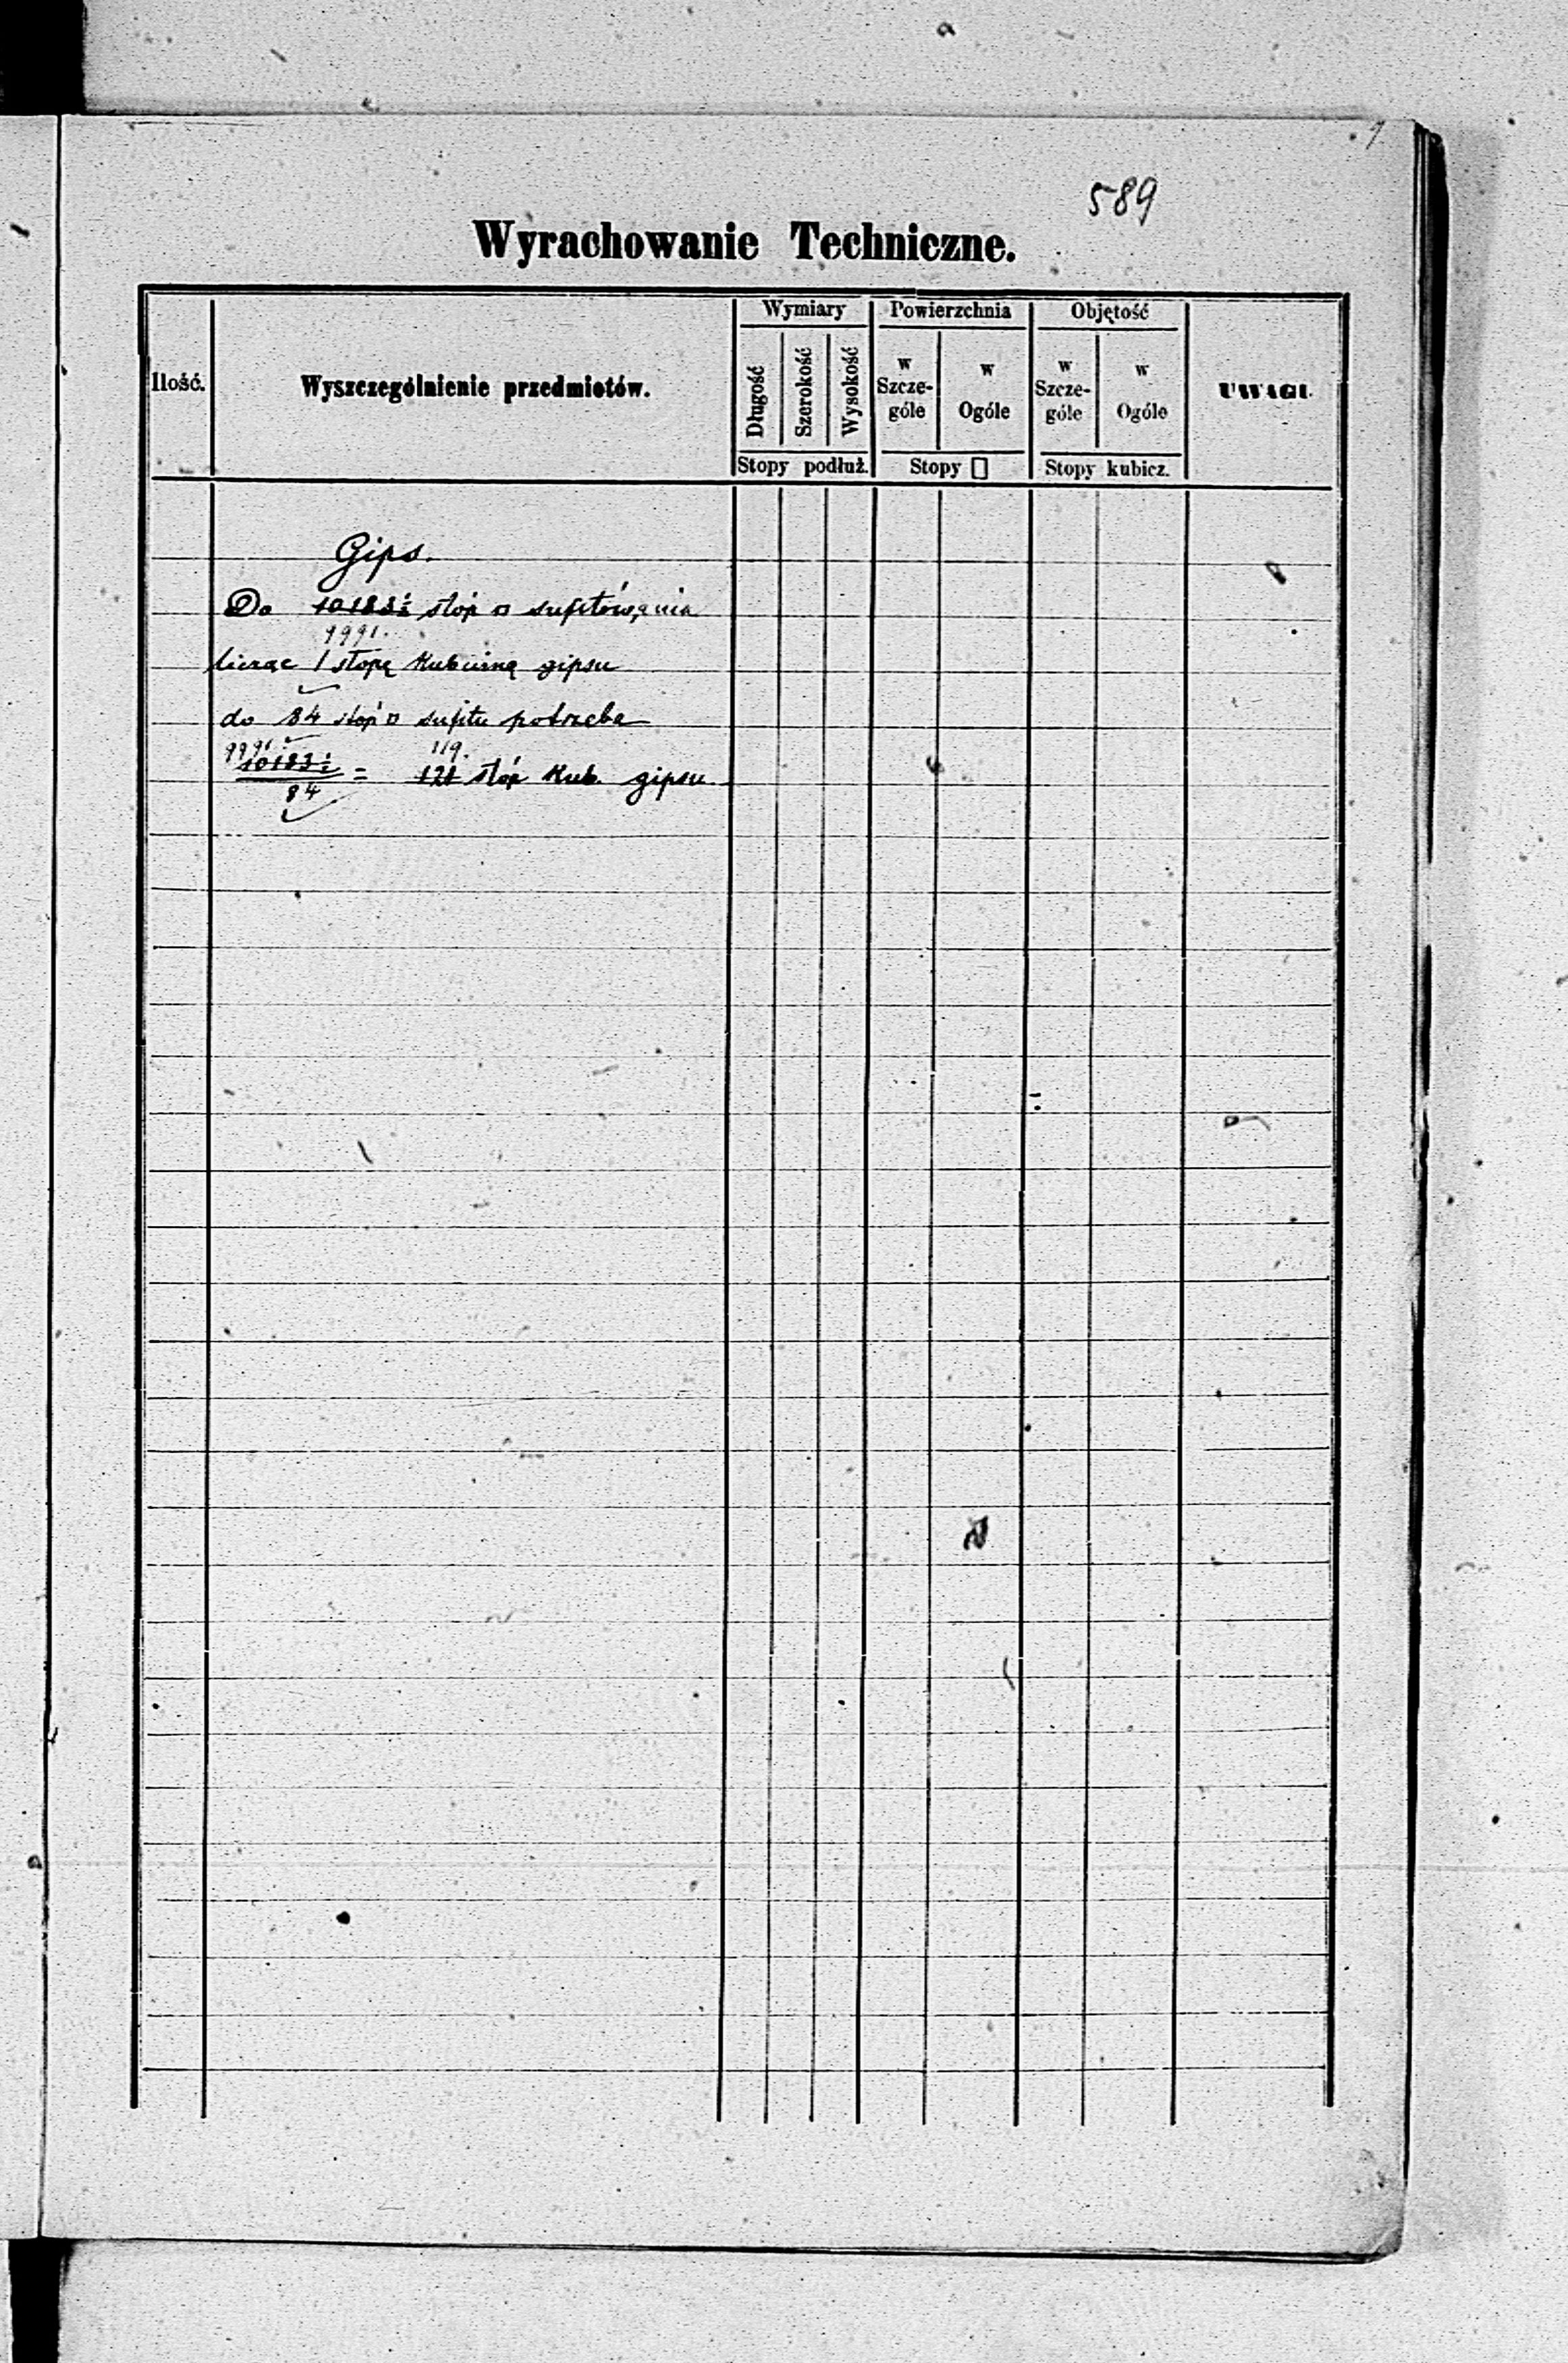 589
Wyrachowanie Techniczne.
Ilość.
Wyszczególnienie przedmiotów.
Wymiary
Długość
Szerokość
Wysokość
Stopy podłuż.
Powierzchnia
w Szcze-góle
w Ogóle
Stopy □
Objętość
w Szcze-góle
w Ogóle
Stopy kubicz.
UWAGI.
Gips.
Do 10183½ stóp □ sufitowania
9991.
licząc 1 stopę kubiczną gipsu
do 84 stóp □ sufitu potrzeba
9991 119.
10183½ = 121 stóp kub. gipsu
84